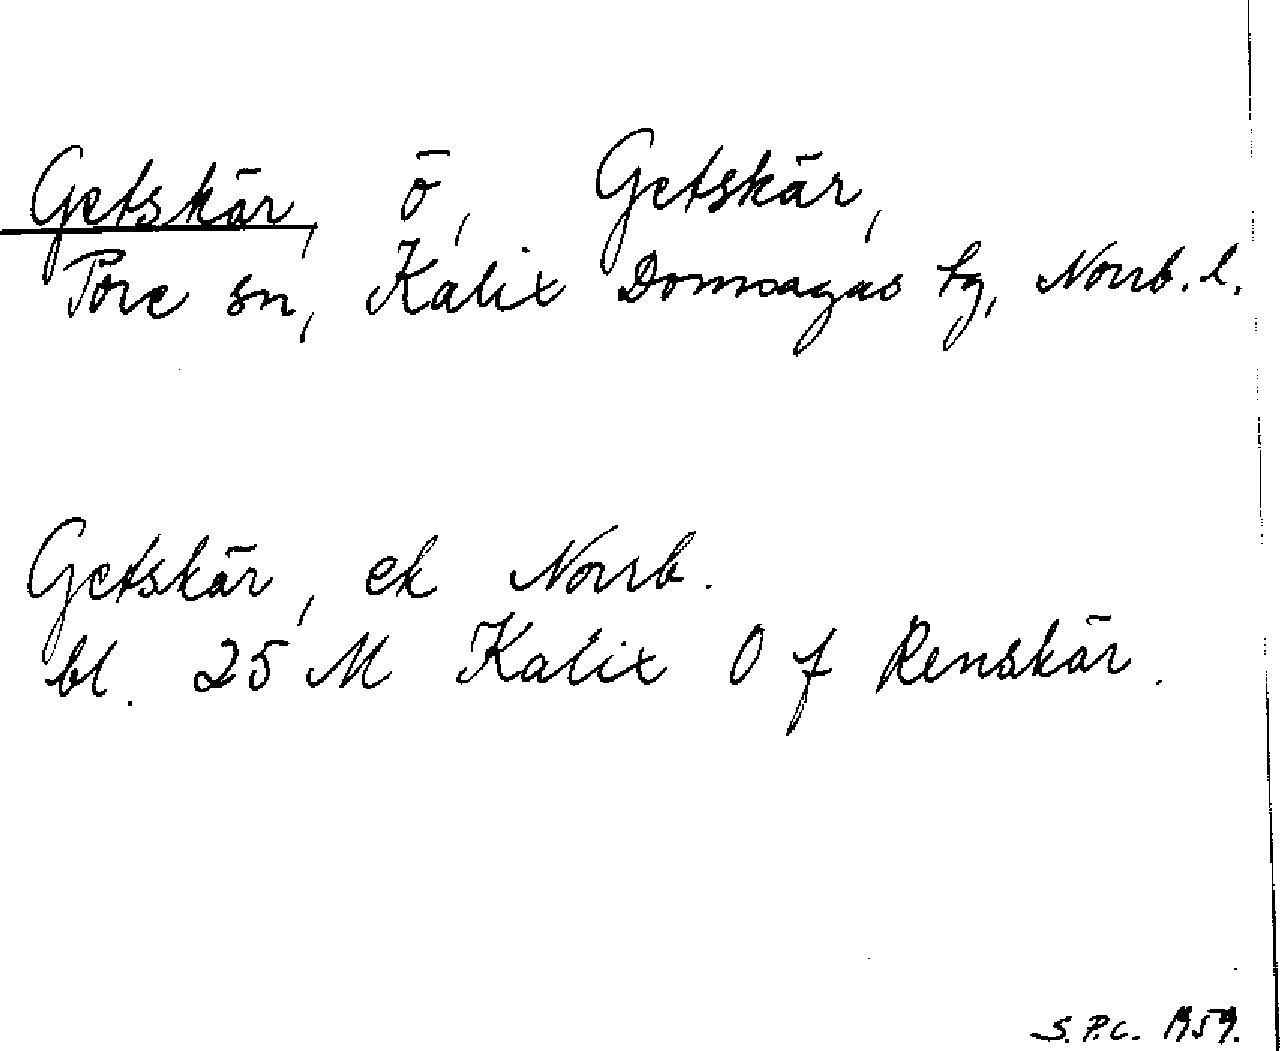 Getskär, ö, Getskär,
Töre sn, Kalix Domsagas tg, Norrb. l.
Getskär, ek Norrb.
bl. 25 M Kalix O f Renskär.
S.P.C. 1959.